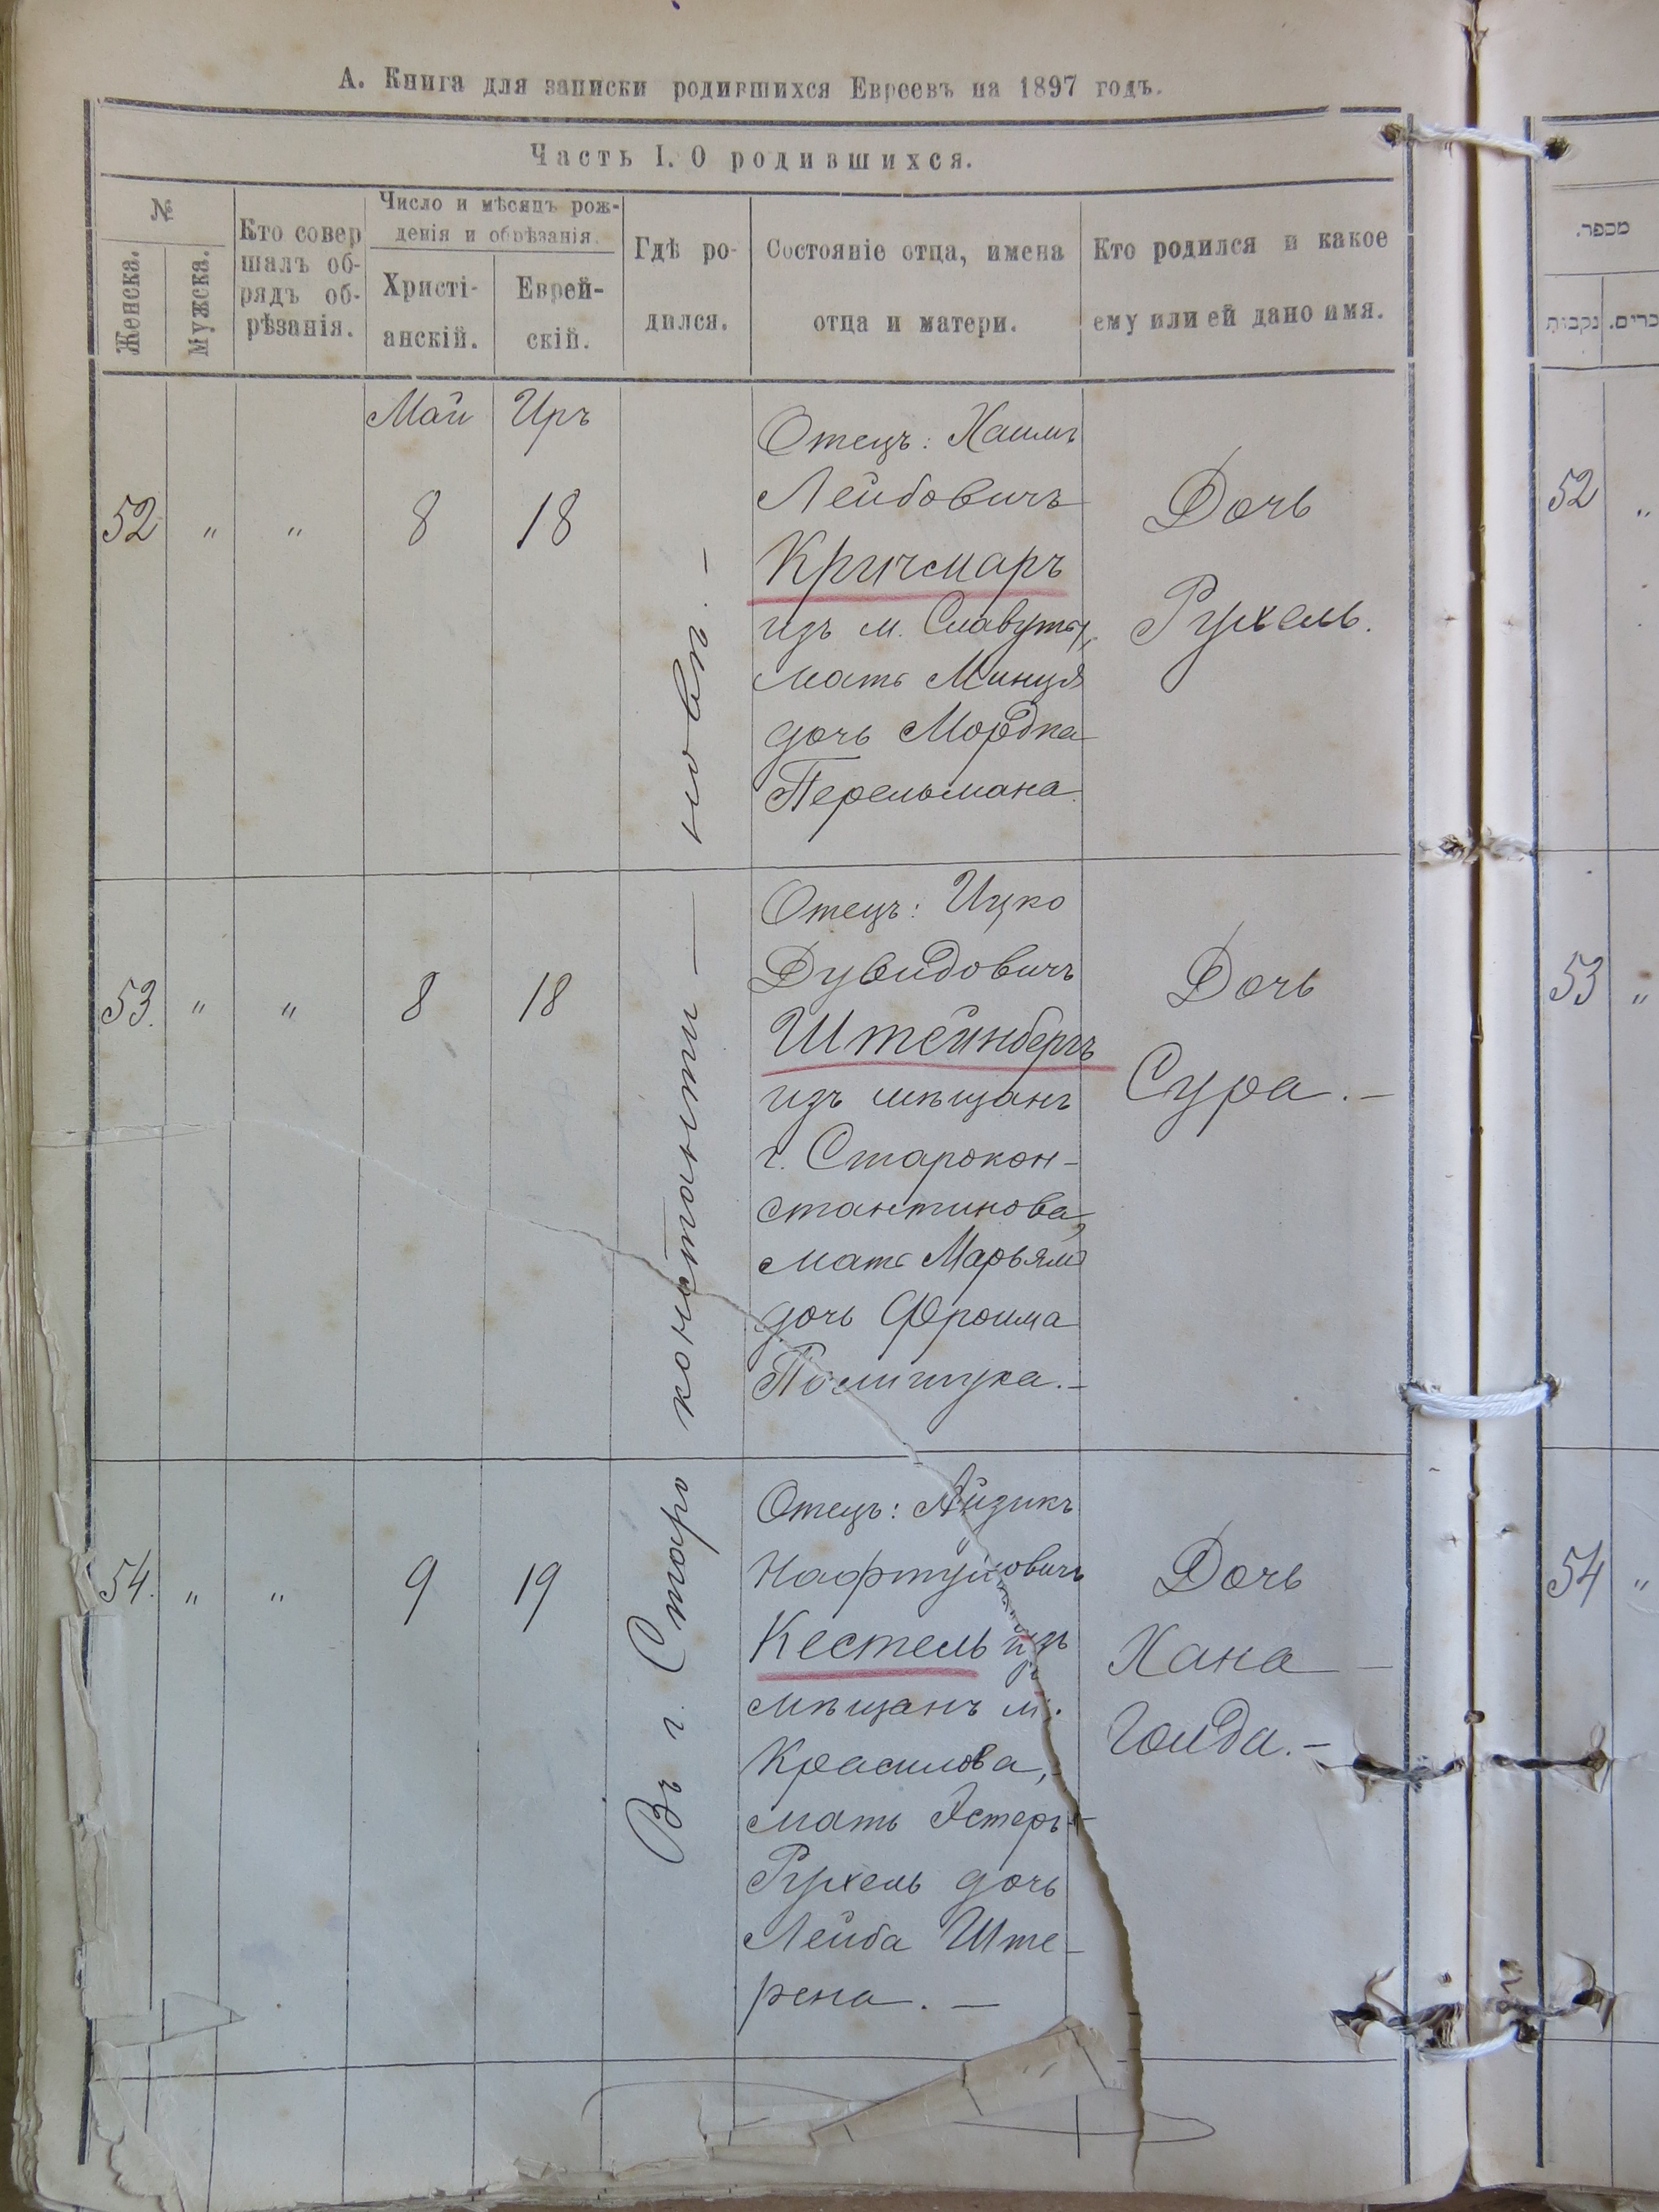 А. Книга для записки родившихся Евреевъ на 1897 годъ.
Часть I. О родившихся.
№
Женска.
Мужска.
Кто совер
шалъ об-
рядъ об-
рѣзанія.
Число и мѣсяцъ рож-
денія и обрѣзанія.
Христі-
анскій.
Еврей-
скій.
Гдѣ ро-
дился.
Состояніе отца, имена
отца и матери.
Кто родился и какое
ему или ей дано имя.
Май
Иръ
52 " " 8 18
Отецъ: Хаимъ
Лейбовичъ
Кричмаръ
изъ м. Славуты,
мать Минця
дочь Мордка
Перельмана
Дочь
Рухель.
53. " " 8 18
Отецъ: Ицко
Дувидовичъ
Штейнбергъ
изъ мѣщанъ
г. Старокон-
стантинова,
мать Марьям
дочь Фроима
Полищука.-
Дочь
Сура.-
54. " " 9 19
Отецъ: Айзикъ
Нафтуловичъ
Кестель изъ
мѣщанъ м.
Красилова,
мать Эстеръ-
Рухель дочь
Лейба Ште-
рена. —
Дочь
Хана —
Голда.-
Въ г. Старо константи — новѣ. -
מספר.
נקבות
כרים.
52 "
53 "
54 "